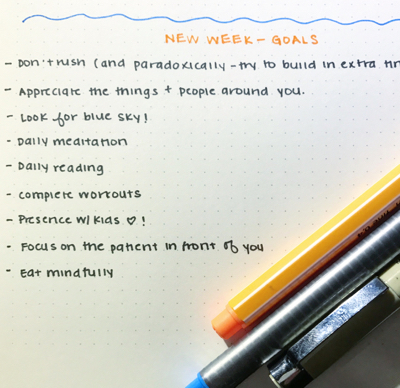 NEW WEEK - GOALS
- Don't rush (and paradoxically - try to build in extra
- Appreciate the things + people around you.
- Look for blue sky!
- Daily meditation
- Daily reading
- complete workouts
- Presence w/ kids ♡!
- Focus on the patient in front of you
- Eat mindfully